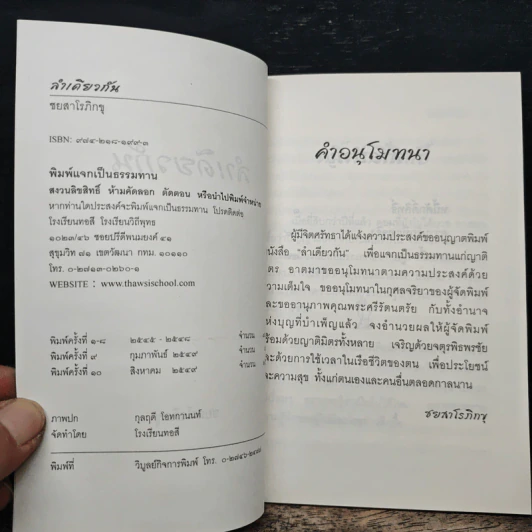 ลำเดียวกัน
ชยสาโรภิกขุ
ISBN: ๙๗๔-๒๑๘-๑๙๙-๓
พิมพ์แจกเป็นธรรมทาน
สงวนลิขสิทธิ์ ห้ามคัดลอก ตัดตอน หรือนำไปพิมพ์จำหน่าย
หากท่านใดประสงค์จะพิมพ์แจกเป็นธรรมทาน โปรดติดต่อ
โรงเรียนทอสี โรงเรียนวิถีพุทธ
๑๐๒๓/๔๖ ซอยปรีดีพนมยงค์ ๔๑
สุขุมวิท ๗๑ เขตวัฒนา กทม. ๑๐๑๑๐
โทร. ๐-๒๗๑๓-๐๒๖๐-๑
WEBSITE : www.thawsischool.com
พิมพ์ครั้งที่ ๑-๘ ๒๕๔๕ - ๒๕๔๘ จำนวน
พิมพ์ครั้งที่ ๙ กุมภาพันธ์ ๒๕๔๙ จำนวน
พิมพ์ครั้งที่ ๑๐ สิงหาคม ๒๕๔๙ จำนวน
ภาพปก กุลฤดี โอทกานนท์
จัดทำโดย โรงเรียนทอสี
พิมพ์ที่ วิบูลย์กิจการพิมพ์ โทร.
คำอนุโมทนา
ผู้มีจิตศรัทธาได้แจ้งความประสงค์ขออนุญาตพิมพ์
นังสือ "ลำเดียวกัน" เพื่อแจกเป็นธรรมทานแก่ญาติ
ตร อาตมาขออนุโมทนาตามความประสงค์ด้วย
วามเต็มใจ ขออนุโมทนาในกุศลจริยาของผู้จัดพิมพ์
และขออานุภาพคุณพระศรีรัตนตรัย กับทั้งอำนาจ
ห่งบุญที่บำเพ็ญแล้ว จงอำนวยผลให้ผู้จัดพิมพ์
ร้อมด้วยญาติมิตรทั้งหลาย เจริญด้วยจตุรพิธพรชัย
ละด้วยการใช้เวลาในเรือชีวิตของตน เพื่อประโยชน์
ละความสุข ทั้งแก่ตนเองและคนอื่นตลอดกาลนาน
ชยสาโรภิกขุ